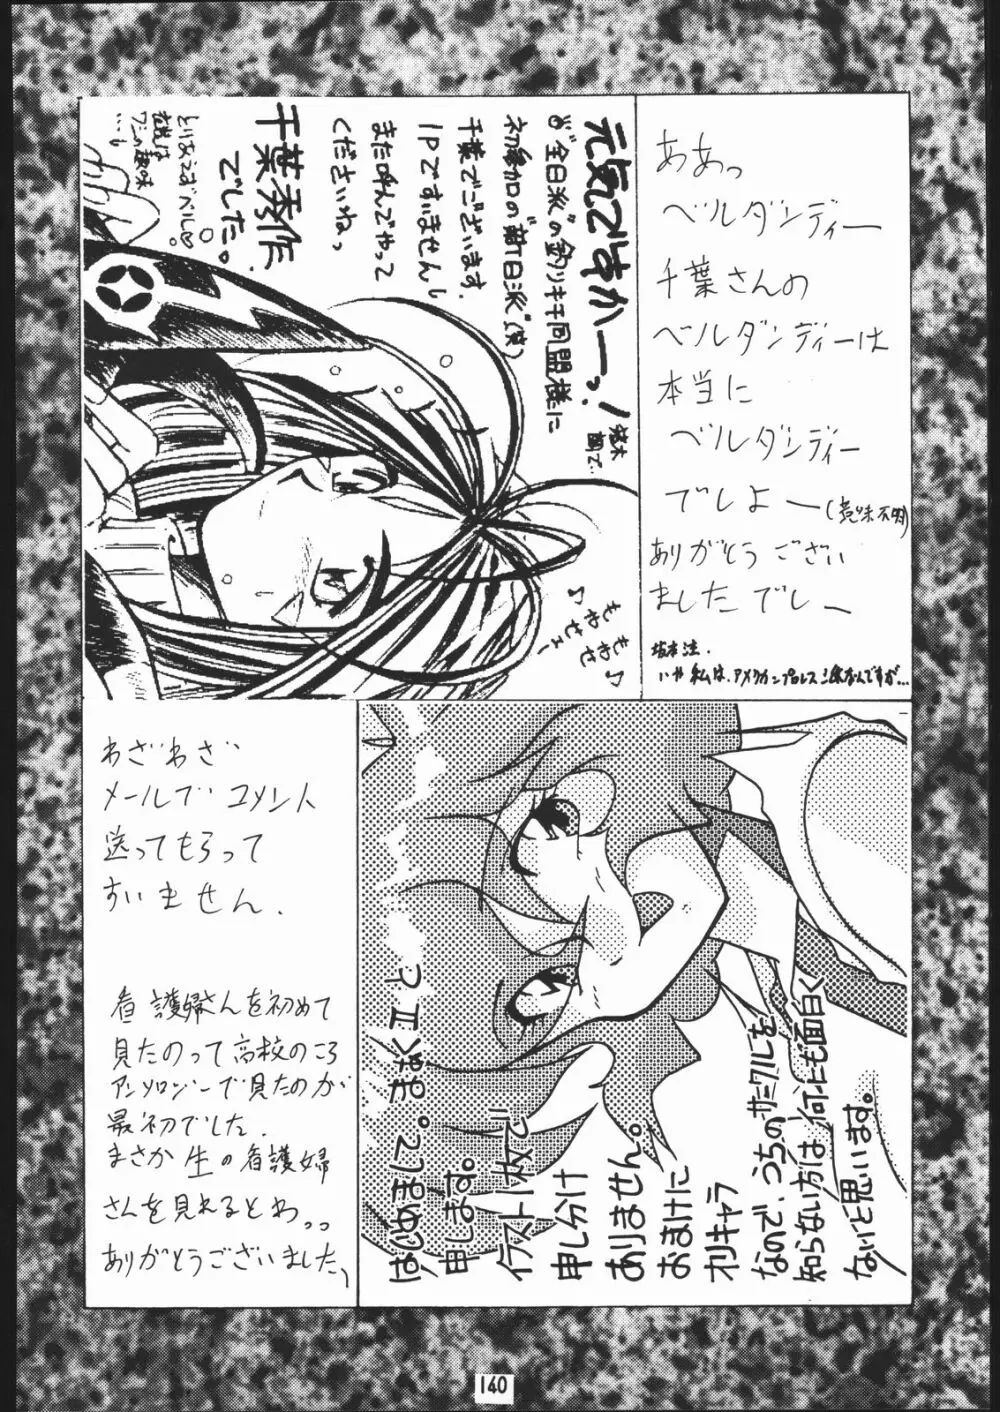 元気ですかーっ!
"全日派"の釣りキチ同盟様に
初参加の"新日派"(笑)
千葉でございます。
1Pですいませんし
また呼んでやって
くださいねっ
千葉秀作
でした。
とりあえずベルで
ああっ
ベルダンディー
千葉さんの
ベルダンディーは
本当に
ベルダンディー
でしょー(意味不明)
ありがとうござい
ましたでしー
いや私は、アメリカンプロレス派なんですが…
わざわざ
メールでコメント
送ってもらって
すいません.
看護婦さんを初めて
見たのって高校のころ
アンソロジーで見たのが
最初でした.
まさか生の看護婦
さんを見れるとわっっ
ありがとうございました
はじめまして。まなぐIIと
申します。
イラスト1枚で
申し分け
ありません。
おまけに
オリキャラ
なので、うちのサークルを
知らない方は何にも面白く
ないと思います。
140